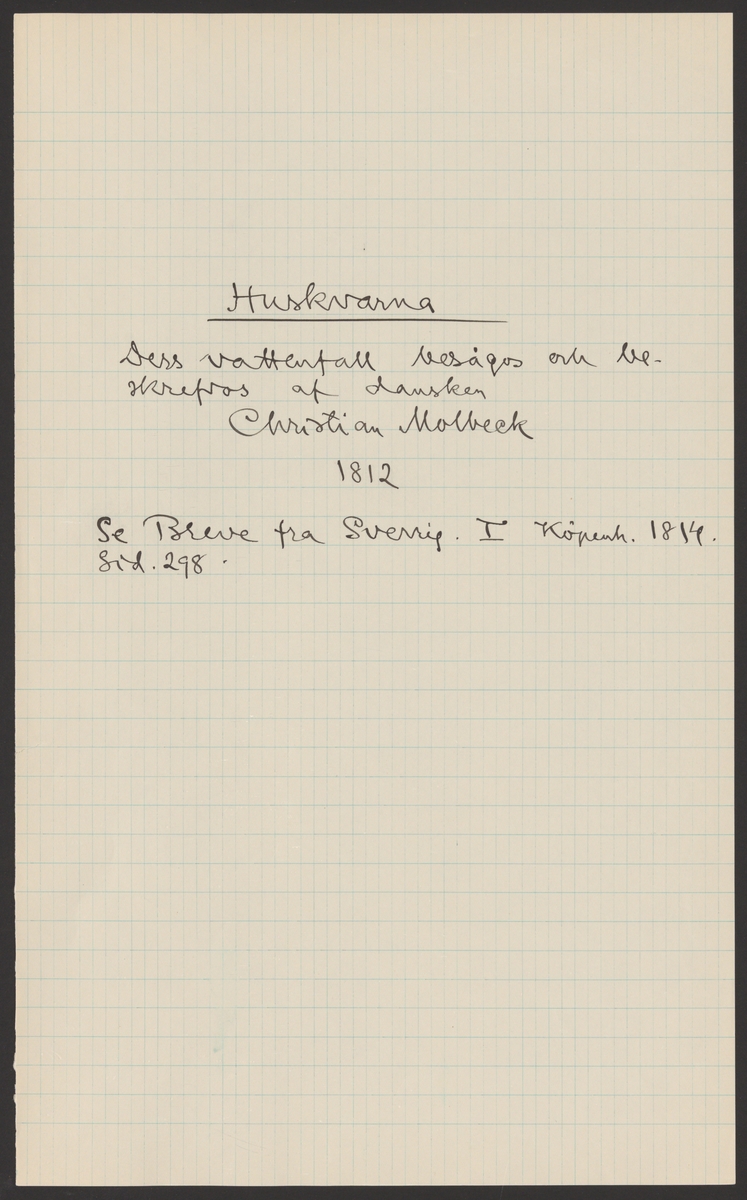 Huskvarna
Dess vattenfall besågos och be-
skrefvos af dansken
Christian Molbeck
1812
Se Breve fra Sverrig. I Köpenh. 1814.
Sid. 298.